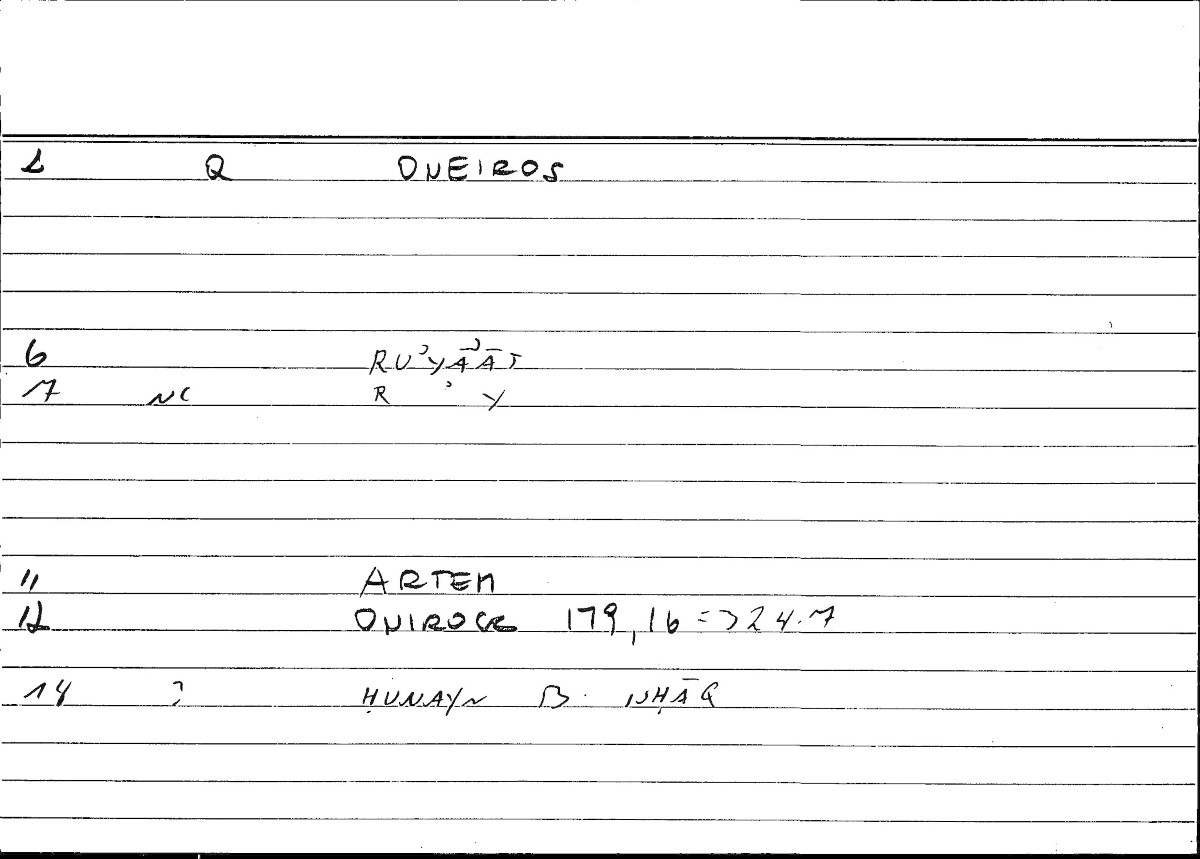 1 Q ONEIROS
6 RUʾYĀʾĀT
7 NC R ʾ Y
11 ARTEM
12 ONIROCR 179,16 => 24.7
14 ? ḤUNAYN B. ISḤĀQ